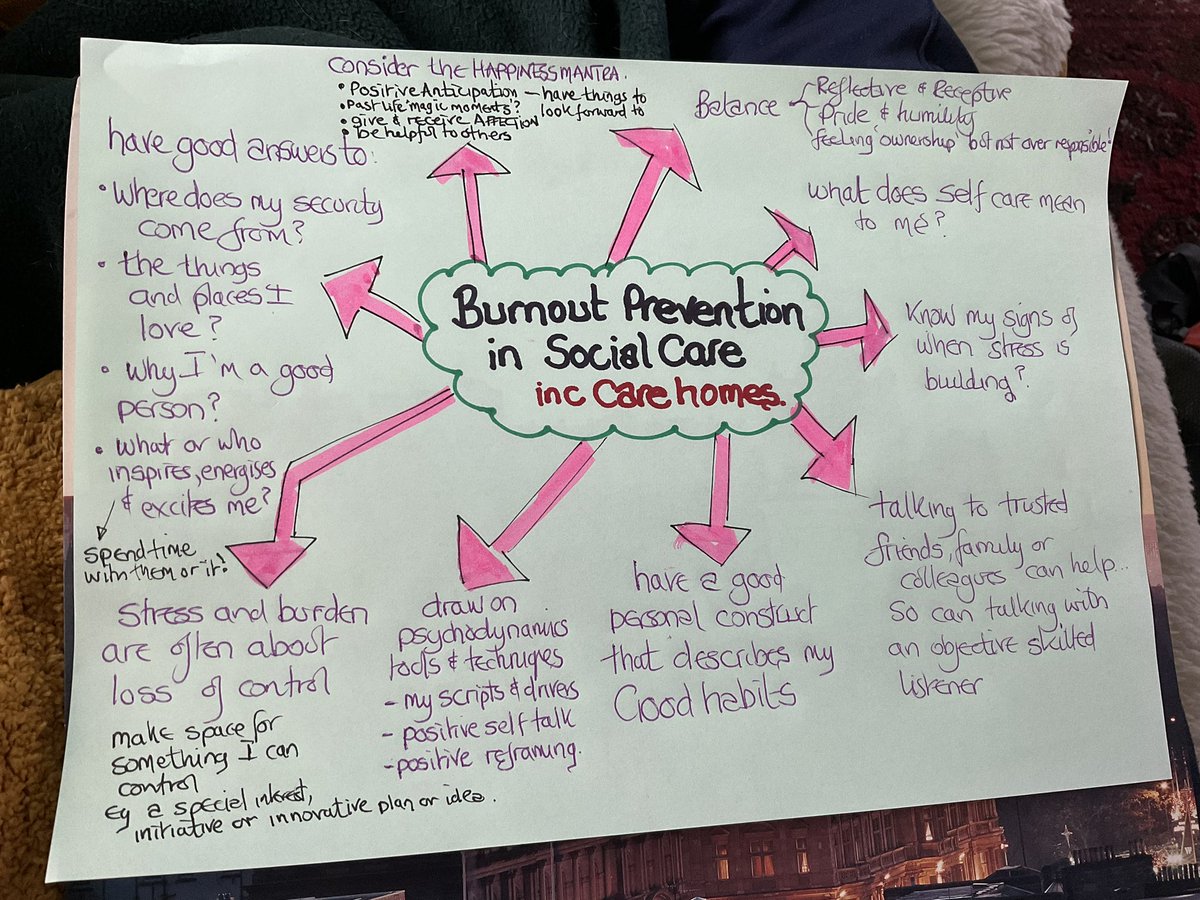 Burnout Prevention
in Social Care
inc Care homes.
Consider the HAPPINESS MANTRA.
• Positive Anticipation – have things to
look forward to
• Past life 'magic moments'?
• give & receive AFFECTION
• be helpful to others
Balance
Reflective & Receptive
Pride & humility
'feeling 'ownership' but not over responsible'
What does self care mean
to me?
Know my signs of
when stress is
building?
talking to trusted
friends, family or
colleagues can help...
So can talking with
an objective skilled
listener
have a good
personal construct
that describes my
Good habits
draw on
psychodynamics
tools & techniques
- my scripts & drivers
- positive self talk
- positive reframing.
Stress and burden
are often about
loss of control
make space for
something I can
control
Eg a special interest,
initiative or innovative plan or idea.
have good answers to:
• Where does my security
come from?
• the things
and places I
love?
• Why I'm a good
person?
• What or who
inspires, energises
& excites me?
spend time
with them or it!